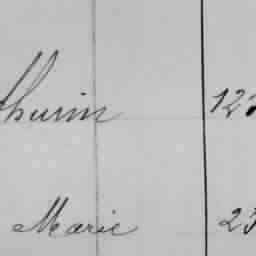 thurin 12
Marie 23